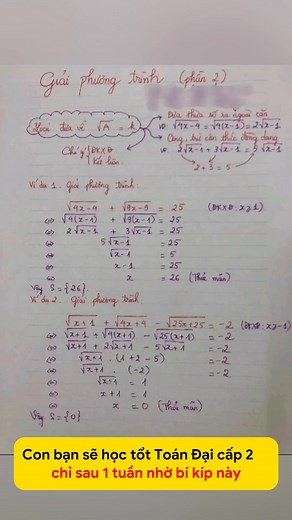 Giải phương trình (phần 2)
Loại đưa về √A = k
Chú ý: ĐKXĐ
Kết luận
Đưa thừa số ra ngoài căn
VD: √4x-4 = √4(x-1) = 2√x-1
Cộng, trừ căn thức đồng dạng
VD: 2√x-1 + 3√x-1 = 5√x-1
2+3 = 5
Ví dụ 1. Giải phương trình:
√4x-4 + √9x-9 = 25 (ĐKXĐ: x≥1)
⇔ √4(x-1) + √9(x-1) = 25
⇔ 2√x-1 + 3√x-1 = 25
⇔ 5√x-1 = 25
⇔ √x-1 = 5
⇔ x-1 = 25
⇔ x = 26 (Thỏa mãn)
Vậy S = {26}.
Ví dụ 2. Giải phương trình:
√x+1 + √4x+4 - √25x+25 = -2 (ĐKXĐ: x≥-1)
⇔ √x+1 + √4(x+1) - √25(x+1) = -2
⇔ √x+1 + 2√x+1 - 5√x+1 = -2
⇔ √x+1 . (1+2-5) = -2
⇔ √x+1 . (-2) = -2
⇔ √x+1 = 1
⇔ x+1 = 1
⇔ x = 0 (Thỏa mãn)
Vậy S = {0}
Con bạn sẽ học tốt Toán Đại cấp 2
chỉ sau 1 tuần nhờ bí kíp này